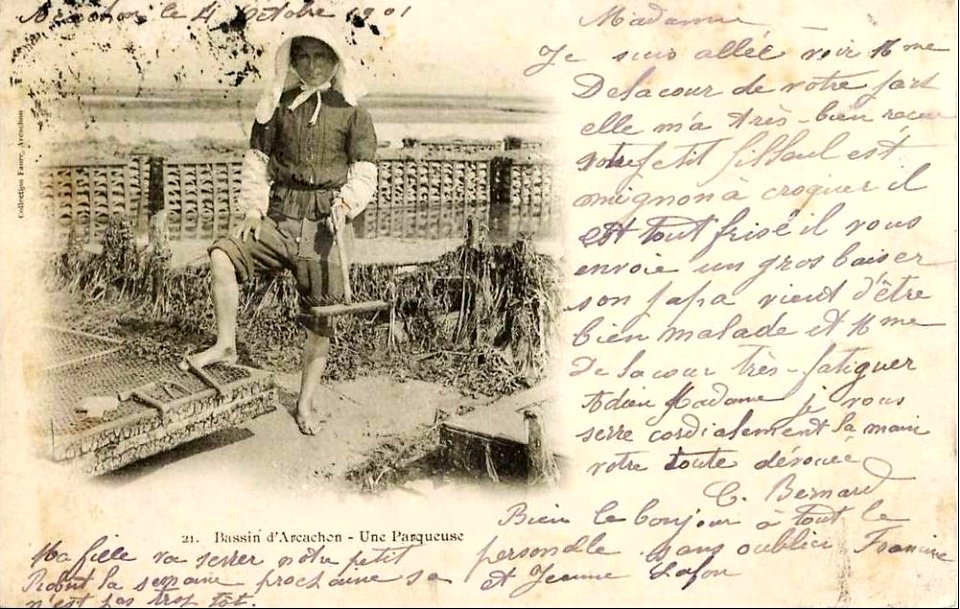 Arcachon le 4 Octobre 1901
Madame
Je suis allée voir Mme
Delacour de votre part
elle m'a très-bien reçue
votre petit filleul est
mignon à croquer il
est tout frisé il vous
envoie un gros baiser
son papa vient d'être
bien malade et Mme
Delacour très-fatiguer
Adieu Madame je vous
serre cordialement la main
votre toute dévouée
C. Bernard
Bien le bonjour à tout le
personelle sans oublier Francine
et Jeanne Lafon
Collection Faure, Arcachon
21. Bassin d'Arcachon - Une Parqueuse
Ma fille va serrer notre petit
Robert la semaine prochaine sa
n'est pas trop tôt.